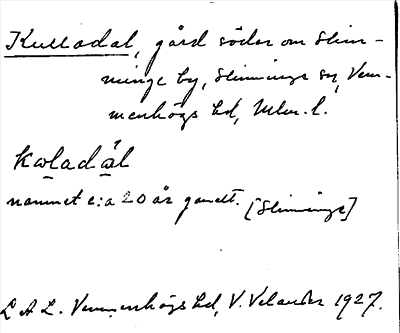 Kulladal, gård söder om Slim-
minge by, Slimminge sn, Vem-
menhögs hd, Mlm. l.
kωladál
namnet c:a 20 år gamelt. [Slimminge]
L A L. Vemmenhögs hd, V. Velander 1927.